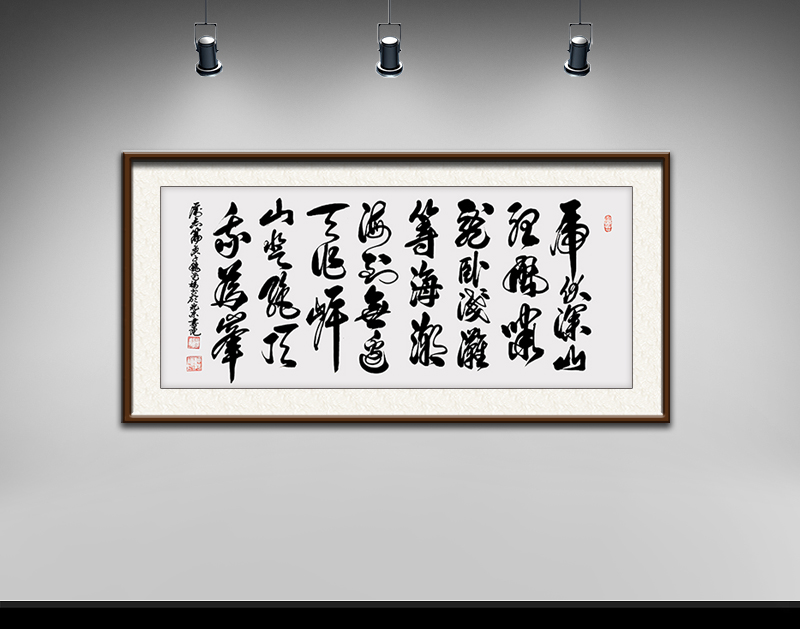 虎伏深山
聽風嘯
龍臥淺灘
等海潮
海到無邊
天作岸
山登絶頂
我為峯